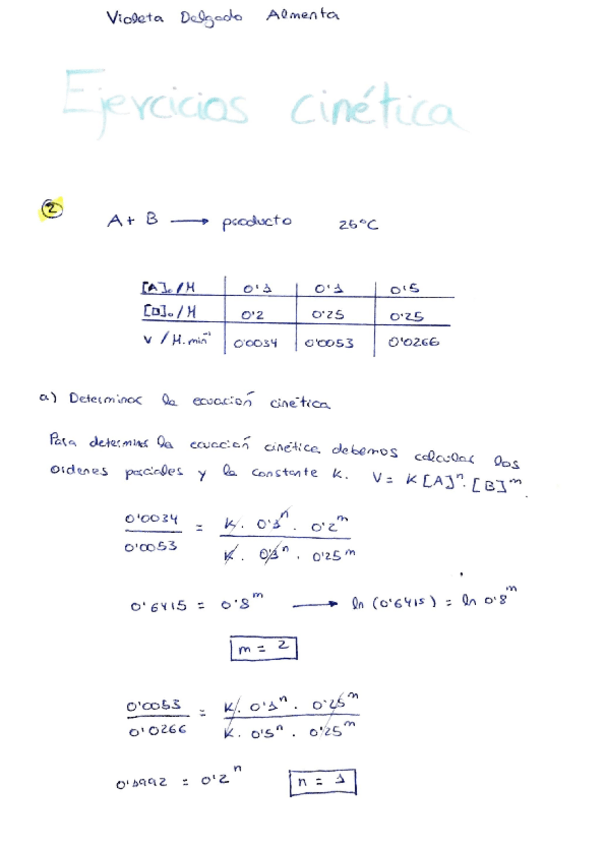 Violeta Delgado Almenta
Ejercicios cinética
2
A + B → producto 25ºC
[A]₀ / M 0'1 0'1 0'5
[B]₀ / M 0'2 0'25 0'25
V / M.min⁻¹ 0'0034 0'0053 0'0266
a) Determinar la ecuación cinética
Para determinar la ecuación cinética debemos calcular los
ordenes parciales y la constante K. V = K [A]ⁿ · [B]ᵐ.
0'0034 / 0'0053 = K · 0'1ⁿ · 0'2ᵐ / K · 0'1ⁿ · 0'25ᵐ
0'6415 = 0'8ᵐ → ln (0'6415) = ln 0'8ᵐ
m = 2
0'0053 / 0'0266 = K · 0'1ⁿ · 0'25ᵐ / K · 0'5ⁿ · 0'25ᵐ
0'1992 = 0'2ⁿ n = 1